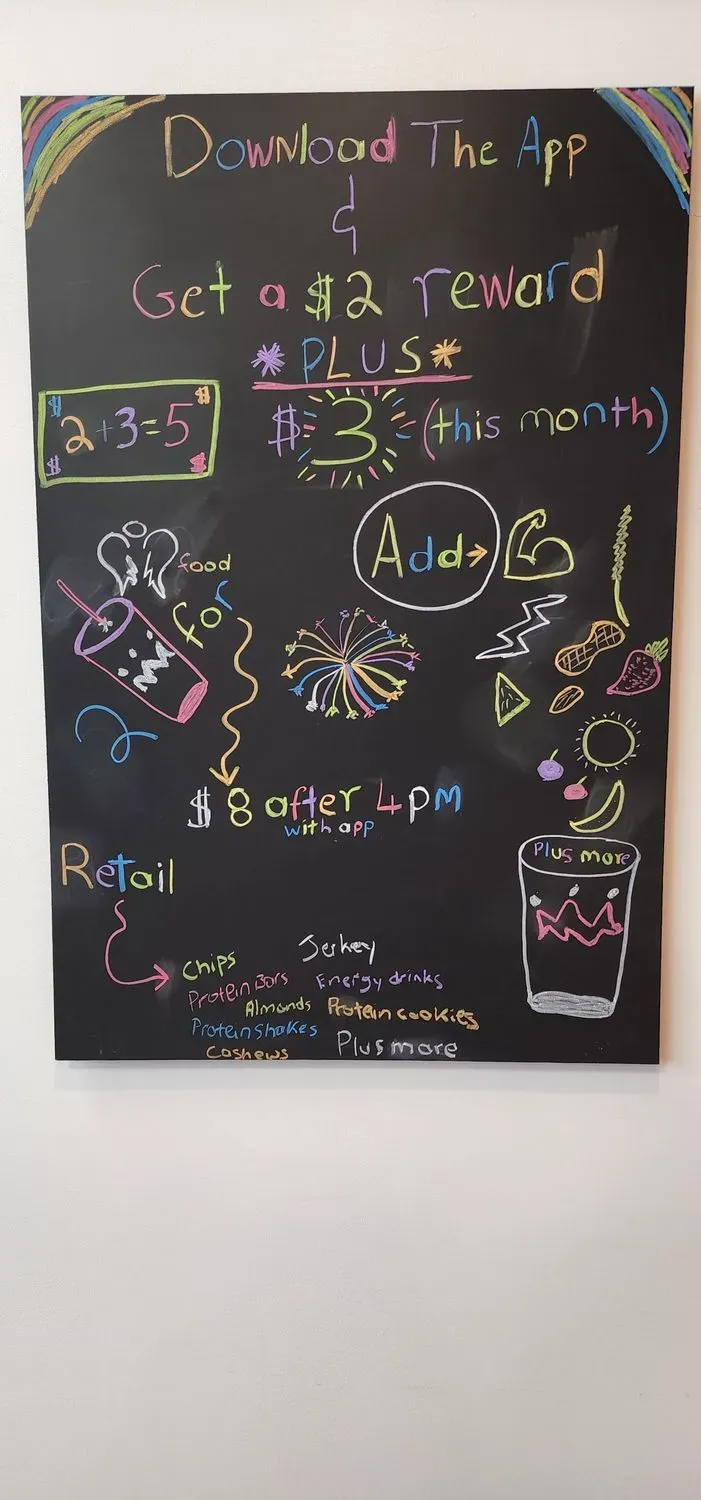 Download The App
&
Get a $2 reward
*PLUS*
$ $
2+3=5
$ $
$3 (this month)
Add→
food
for
$8 after 4pm
with app
Plus more
Retail
Jerkey
Chips
Protein Bars Energy drinks
Almonds Protein cookies
Protein Shakes
Cashews Plus more